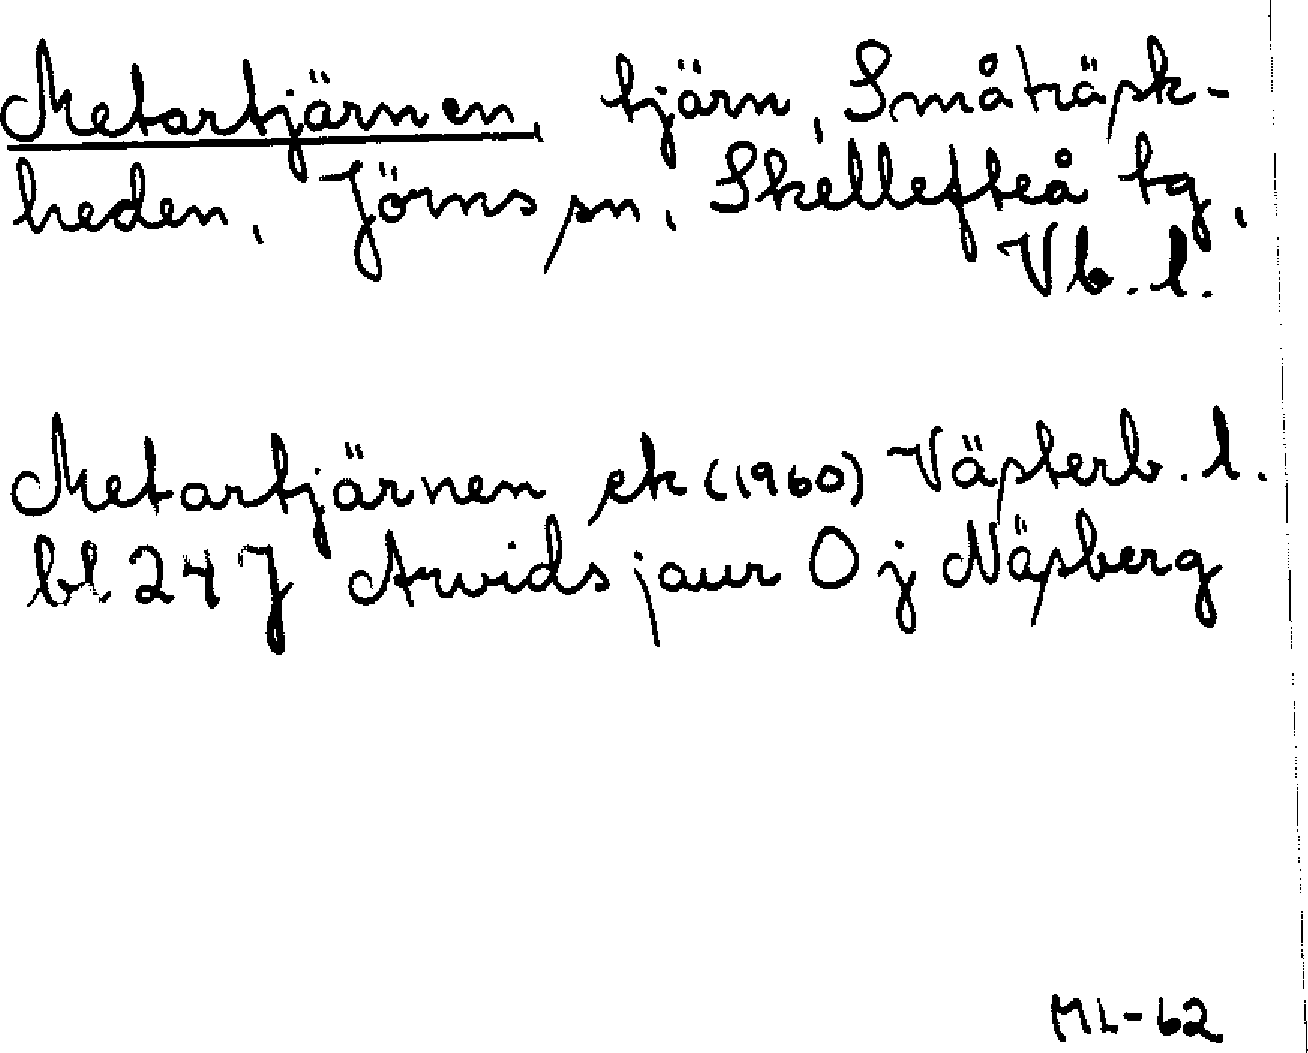 Metartjärnen, tjärn, Småträsk-
heden, Jörns sn, Skellefteå tg,
Vb. l.
Metartjärnen ek (1960) Västerb. l.
bl. 24 J Arvidsjaur O j Näsberg
ML-62